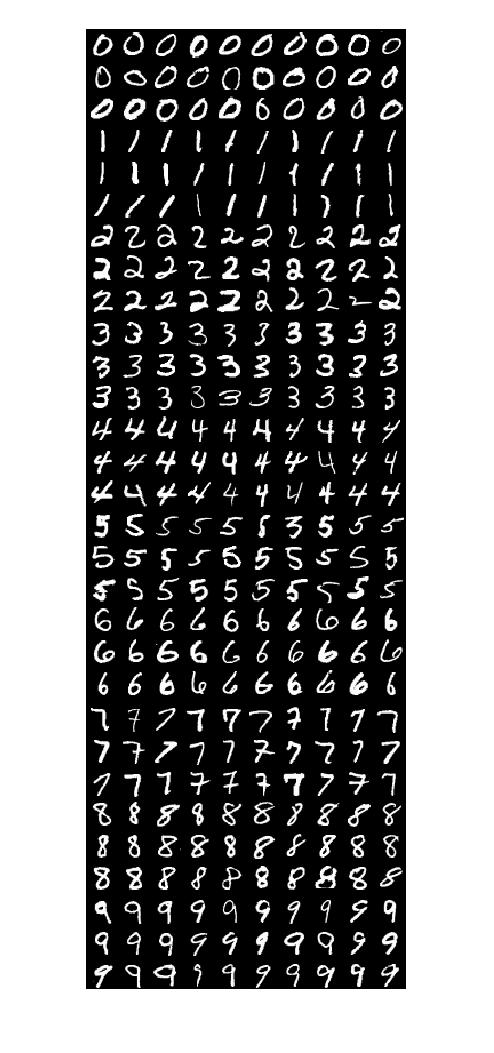 0 0 0 0 0 0 0 0 0 0
0 0 0 0 0 0 0 0 0 0
0 0 0 0 0 0 0 0 0 0
1 1 1 1 1 1 1 1 1 1
1 1 1 1 1 1 1 1 1 1
1 1 1 1 1 1 1 1 1 1
2 2 2 2 2 2 2 2 2 2
2 2 2 2 2 2 2 2 2 2
2 2 2 2 2 2 2 2 2 2
3 3 3 3 3 3 3 3 3 3
3 3 3 3 3 3 3 3 3 3
3 3 3 3 3 3 3 3 3 3
4 4 4 4 4 4 4 4 4 4
4 4 4 4 4 4 4 4 4 4
4 4 4 4 4 4 4 4 4 4
5 5 5 5 5 5 5 5 5 5
5 5 5 5 5 5 5 5 5 5
5 5 5 5 5 5 5 5 5 5
6 6 6 6 6 6 6 6 6 6
6 6 6 6 6 6 6 6 6 6
6 6 6 6 6 6 6 6 6 6
7 7 7 7 7 7 7 7 7 7
7 7 7 7 7 7 7 7 7 7
7 7 7 7 7 7 7 7 7 7
8 8 8 8 8 8 8 8 8 8
8 8 8 8 8 8 8 8 8 8
8 8 8 8 8 8 8 8 8 8
9 9 9 9 9 9 9 9 9 9
9 9 9 9 9 9 9 9 9 9
9 9 9 9 9 9 9 9 9 9